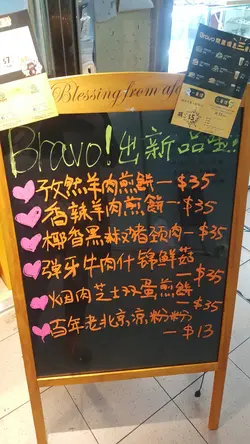 Blessing from
Bravo!出新品啦!
孜然羊肉煎餅-$35
香辣羊肉煎餅-$35
椰香黑椒豬頸肉-$35
彈牙牛肉什錦鮮菇
-$35
烟肉芝士双蛋煎餅
-$35
百年老北京涼粉粉
-$13